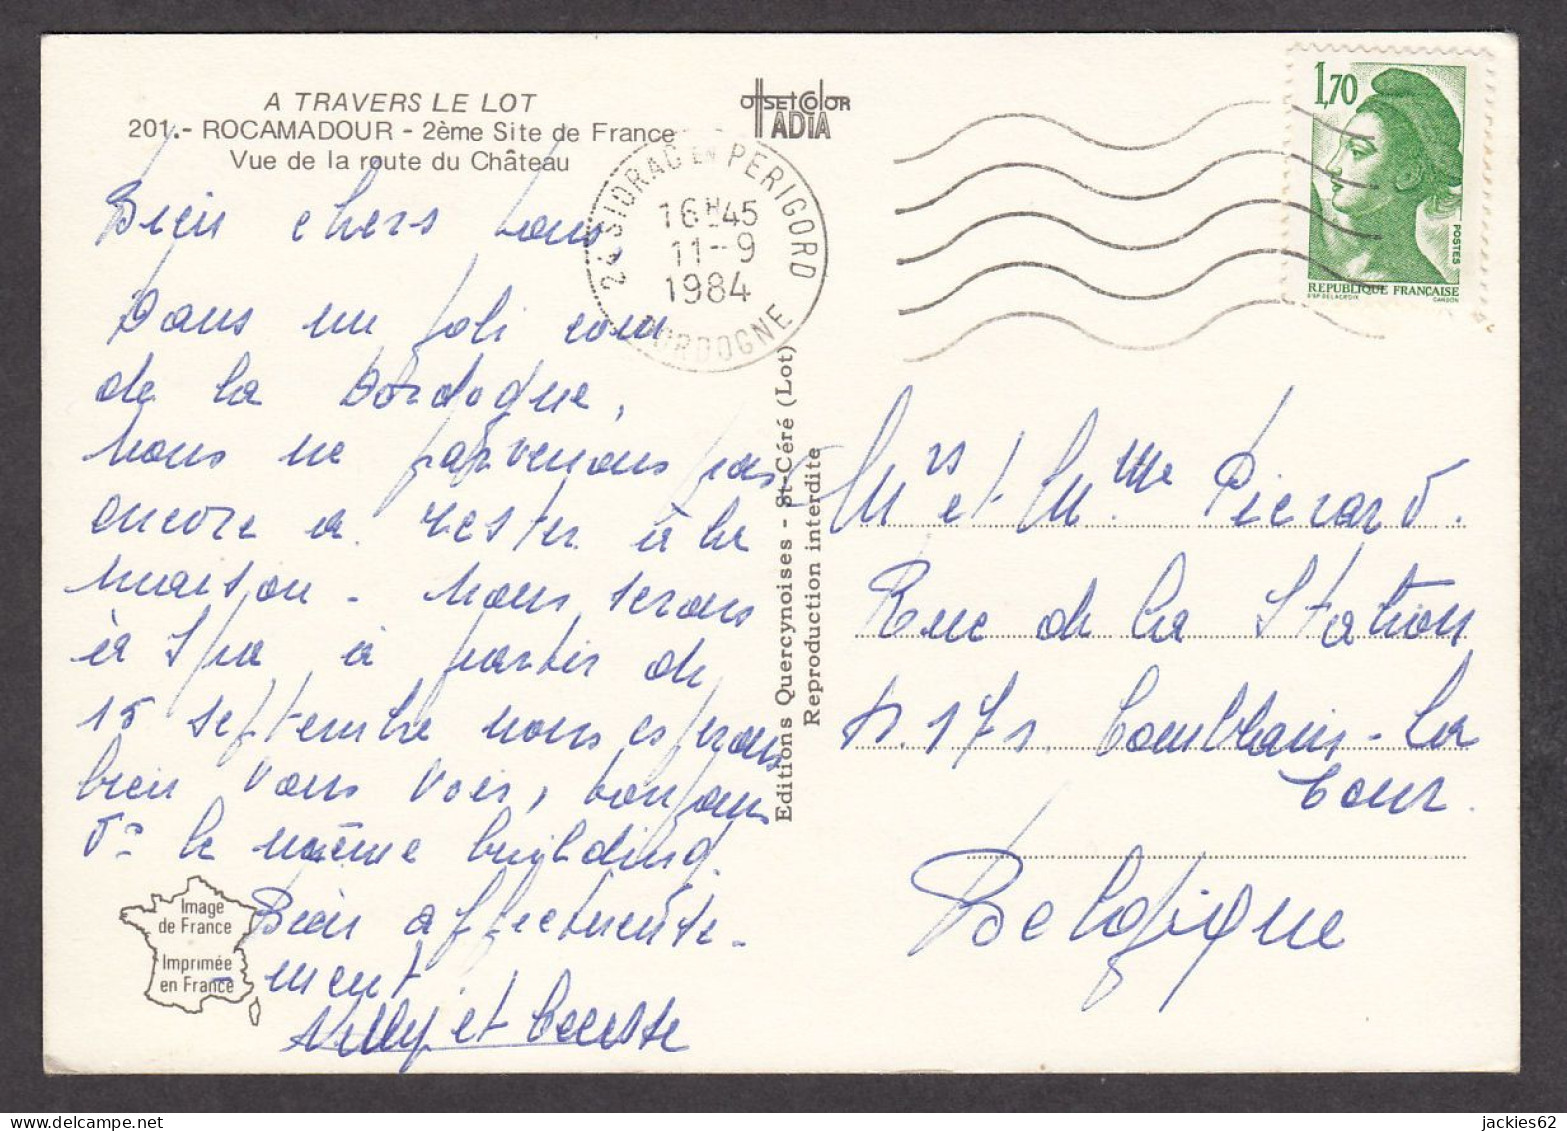 A TRAVERS LE LOT
201.- ROCAMADOUR - 2ème Site de France
Vue de la route du Château
OffSEtColoR
IADIA
24 SIORAC EN PERIGORD
16H45
11--9
1984
DORDOGNE
1,70
POSTES
REPUBLIQUE FRANÇAISE
D'AP. DELACROIX GANDON
Bien chers tous
Dans un joli coin
de la Dordogne,
nous ne parvenons pas
encore à rester à la
maison - nous serons
à Spa à partir de
15 septembre nous espérons
bien vous voir, toujours
ds le même building.
Bien affectueuse-
ment
et
Editions Quercynoises - St-Céré (Lot)
Reproduction interdite
Mrs et Mme Pierard.
Rue de la Station
Comblain-la
Tour.
Belgique
Image
de France
Imprimée
en France
jackies62